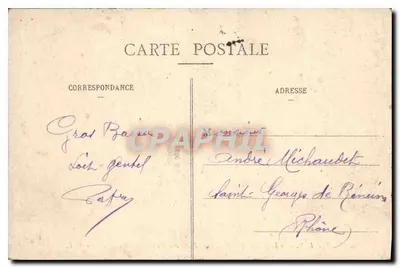 CARTE POSTALE
CORRESPONDANCE
ADRESSE
Gros Baiser
Sois gentil
Monsieur
André Michaudet
Saint-Georges de Reneins
Rhône
CPAPHIL